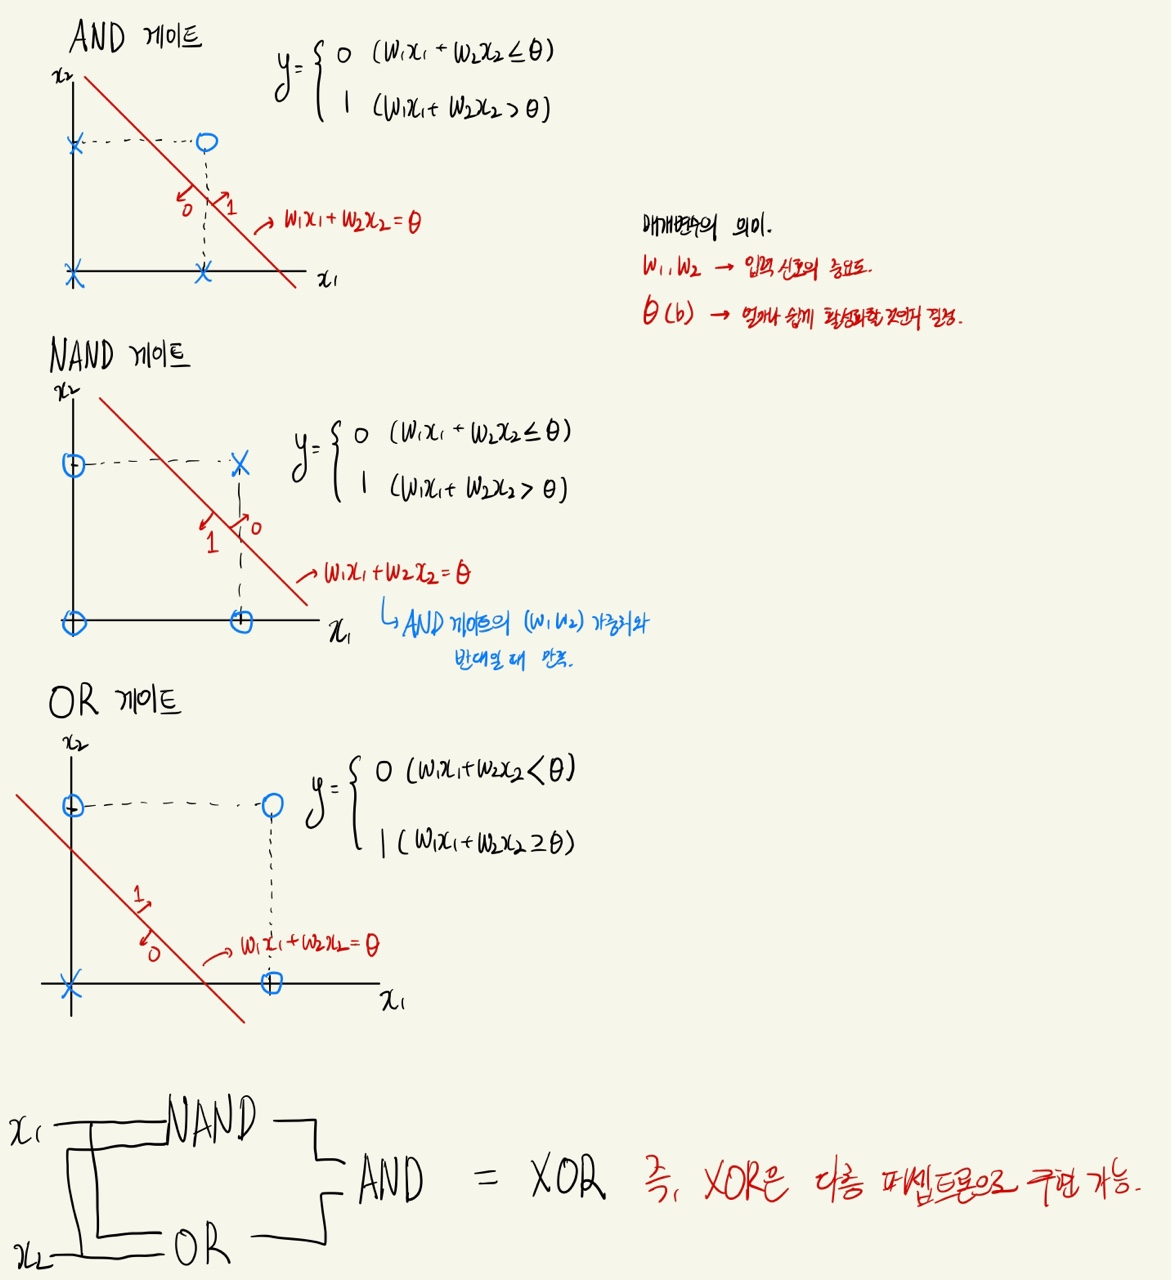 AND 게이트
y = { 0 (w₁x₁ + w₂x₂ ≤ θ)
1 (w₁x₁ + w₂x₂ > θ)
x₂
0 1
w₁x₁ + w₂x₂ = θ
x₁
매개변수의 의미.
w₁, w₂ → 입력 신호의 중요도.
θ(b) → 얼마나 쉽게 활성화할 것인지 결정.
NAND 게이트
x₂
y = { 0 (w₁x₁ + w₂x₂ ≤ θ)
1 (w₁x₁ + w₂x₂ > θ)
1 0
w₁x₁ + w₂x₂ = θ
x₁
↳ AND 게이트의 (w₁ w₂) 가중치와
반대일 때 만족.
OR 게이트
x₂
y = { 0 (w₁x₁ + w₂x₂ < θ)
1 (w₁x₁ + w₂x₂ ≥ θ)
1
0
w₁x₁ + w₂x₂ = θ
x₁
x₁ NAND
AND = XOR 즉, XOR은 다층 퍼셉트론으로 구현 가능.
x₂ OR